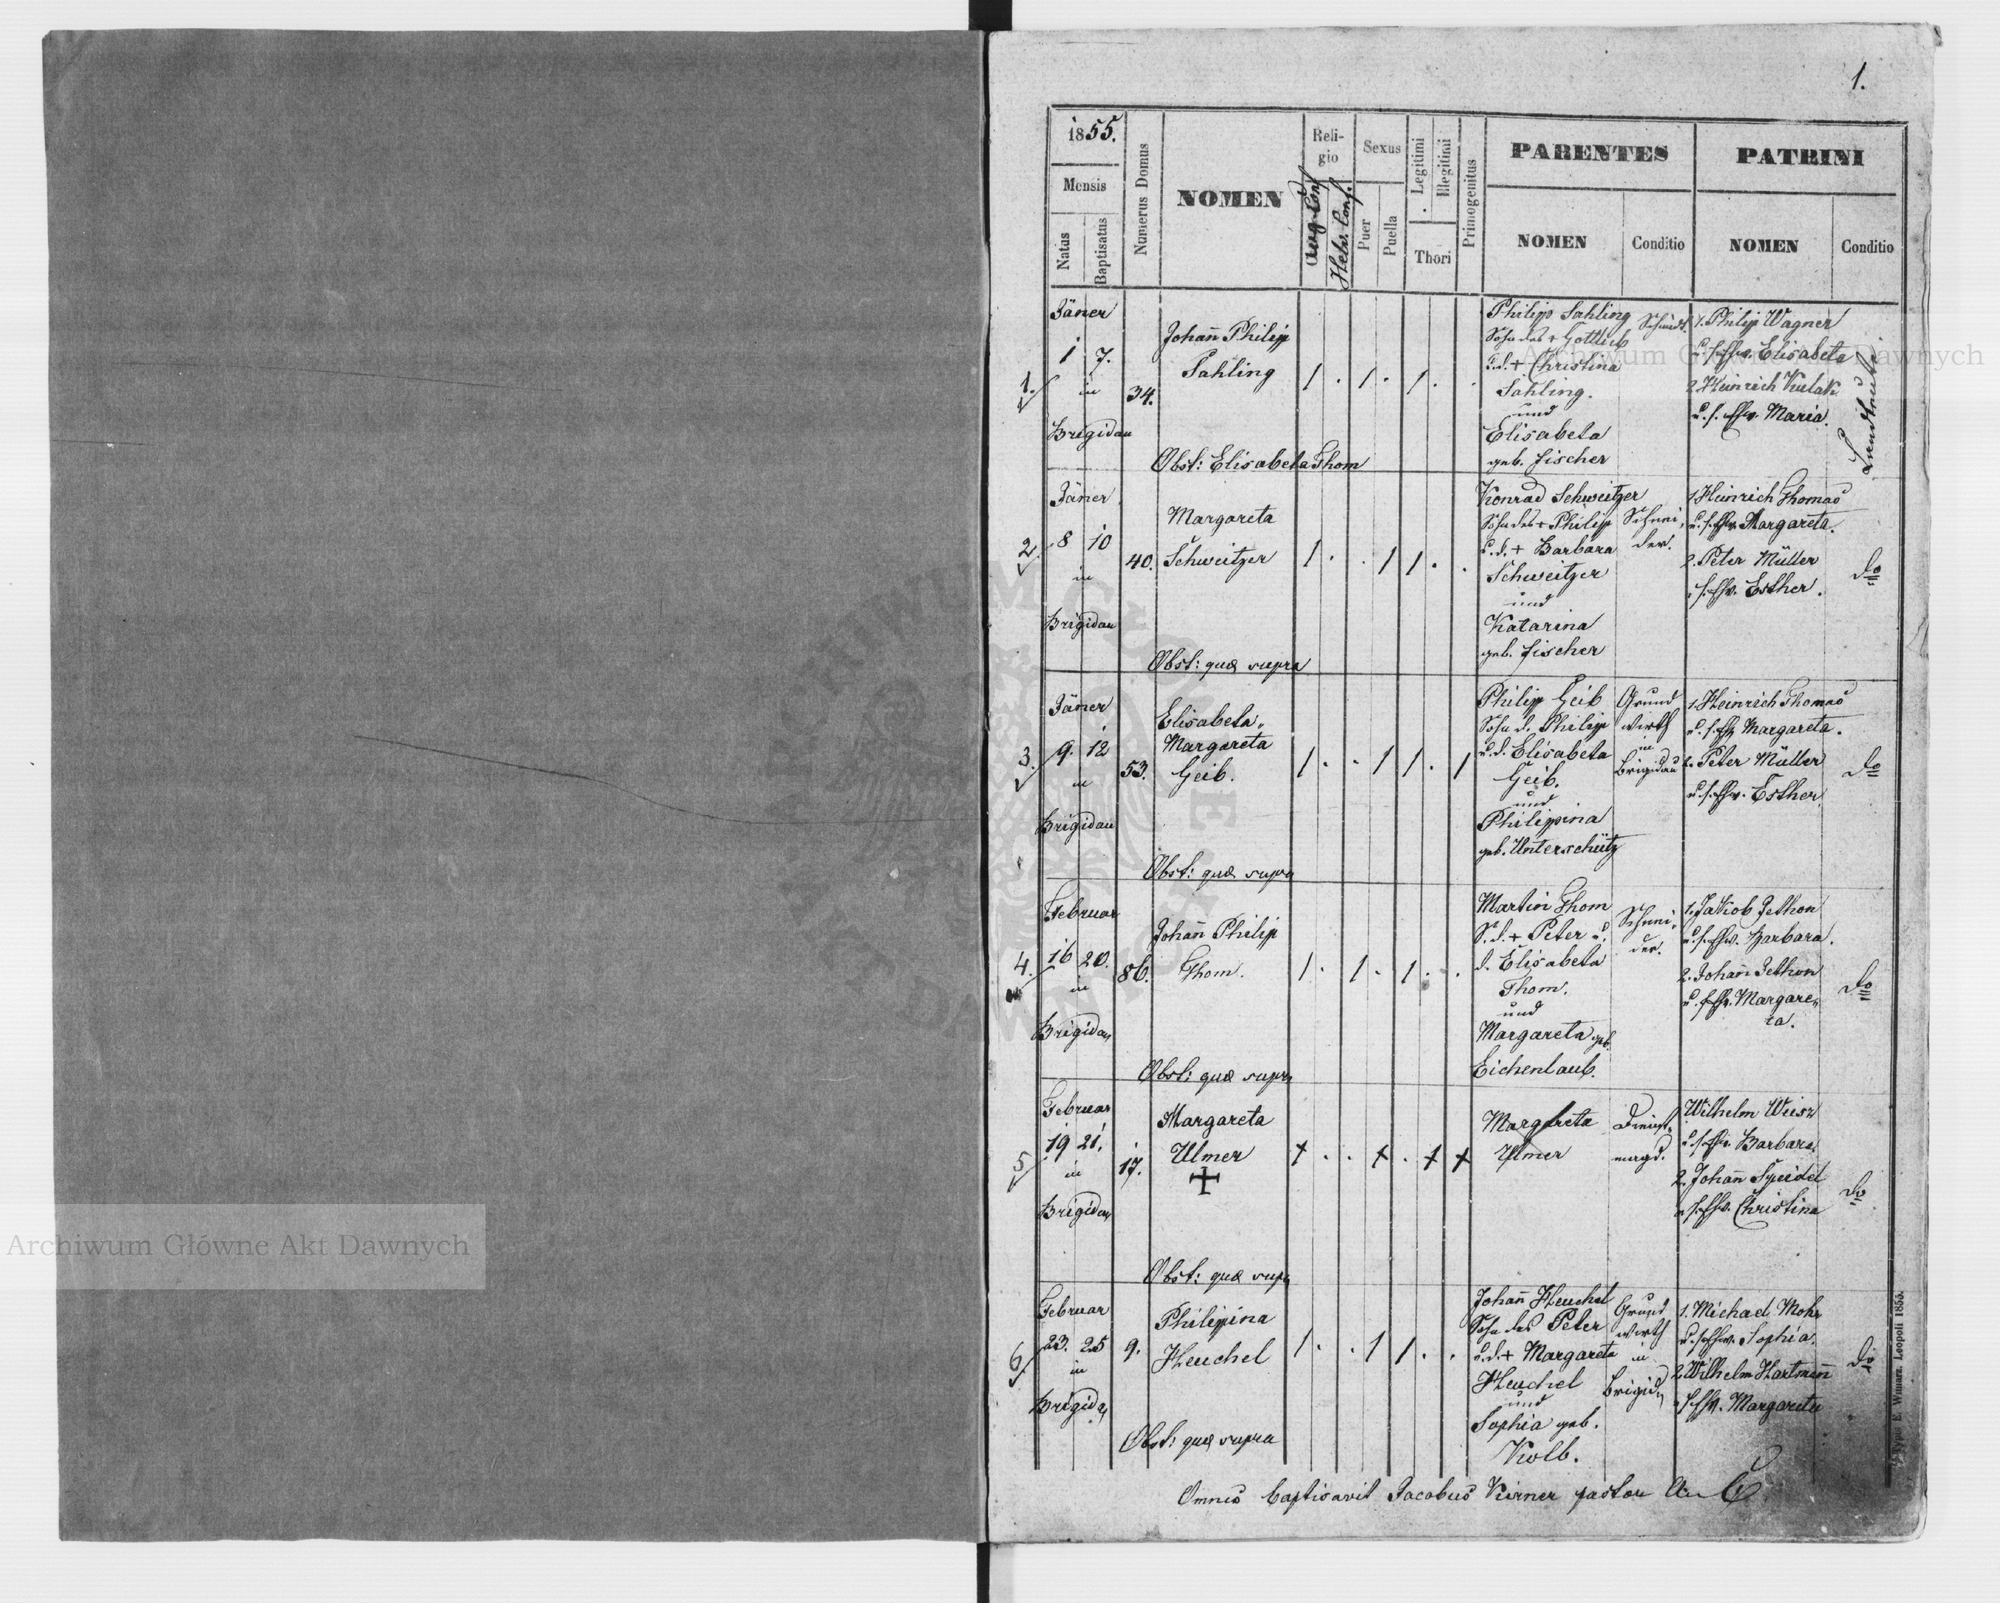 1.
1855.
Mensis
Natus
Baptisatus
Numerus Domus
NOMEN
Religio
Aug. Conf.
Helv. Conf.
Sexus
Puer
Puella
Legitimi
Illegitimi
Thori
Primogenitus
PARENTES
NOMEN
Conditio
PATRINI
NOMEN
Conditio
1.
Jäner
1 7.
in
Brigidau
34.
Johañ Philipp
Sahling
1 . 1 . 1 . .
Obst: Elisabeta Thom
Philipp Sahling
Sohn des + Gottlieb
u.d. + Christina
Sahling.
und
Elisabeta
geb. Fischer
Schmidt.
1. Philipp Wagner
u.s. Ehw. Elisabeta
2. Heinrich
u.s. Ehw. Maria.
Landleute
2.
Jäner
8 10
in
Brigidau
40.
Margareta
Schweitzer
1 . . 1 1 . .
Obst: quæ supra
Konrad Schweitzer
Sohn des + Philipp
u.d. + Barbara
Schweitzer
und
Katarina
geb. Fischer
Schnei-
der.
1. Heinrich Thomas
u.s. Ehw. Margareta.
2. Peter Müller
s. Ehw. Esther.
do
3.
Jäner
9. 12
in
Brigidau
53.
Elisabeta
Margareta
Geib.
1 . . 1 1 . 1
Obst: quæ supra
Philipp Geib
Sohn d. Philipp
u.d. Elisabeta
Geib.
und
Philippina
geb. Unterschütz
Grund
wirth
in
Brigidau
1. Heinrich Thomas
u.s. Ehw. Margareta.
2. Peter Müller
u.s. Ehw. Esther
do
4.
Februar
16 20.
in
Brigidau
86.
Johañ Philip
Thom.
1 . 1 . 1 . .
Obst: quæ supra
Martin Thom
S.d. + Peter u.
d. Elisabeta
Thom.
und
Margareta geb.
Eichenlaub.
Schnei-
der.
1. Jakob Jethon
u.s. Ehw. Barbara.
2. Johañ Jethon
u.s. Ehw. Margare-
ta.
do
5
Februar
19 21.
in
Brigidau
17.
Margareta
Ulmer
+
+ . . + . + +
Obst: quæ supra
Margareta
Ulmer
Dienst-
magd.
Wilhelm Weisz
u.s. Ehw. Barbara.
2. Johañ Speidel
u.s. Ehw. Christina
do
6
Februar
23. 25
in
Brigidau
9.
Philippina
Heuchel
1 . . 1 1 . .
Obst: quæ supra
Johañ Heuchel
Sohn des Peter
u.d. + Margareta
Heuchel
und
Sophia geb.
Kolb.
Grund
wirth
in
Brigidau
1. Michael Mohr
u.s. Ehw. Sophia.
2. Wilhelm Hartmañ
s. Ehw. Margareta
do
Omnes baptisavit Jacobus Kirner pastor
Typis E. Winiarz. Leopoli 1855.
Archiwum Główne Akt Dawnych
Archiwum Główne Akt Dawnych
ARCHIWUM GŁÓWNE AKT DAWNYCH